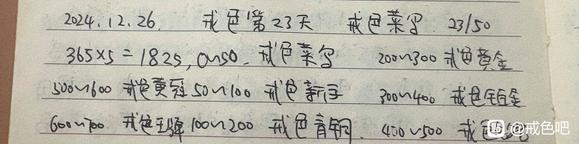 2024.12.26. 戒色第23天 戒色菜鸟 23/50
365×5=1825, 0~50. 戒色菜鸟 200~300 戒色黄金
500~600 戒色 50~100 戒色新手 300~400 戒色铂金
600~700 戒色王 100~200 戒色青铜. 400~500 戒色
@戒色吧